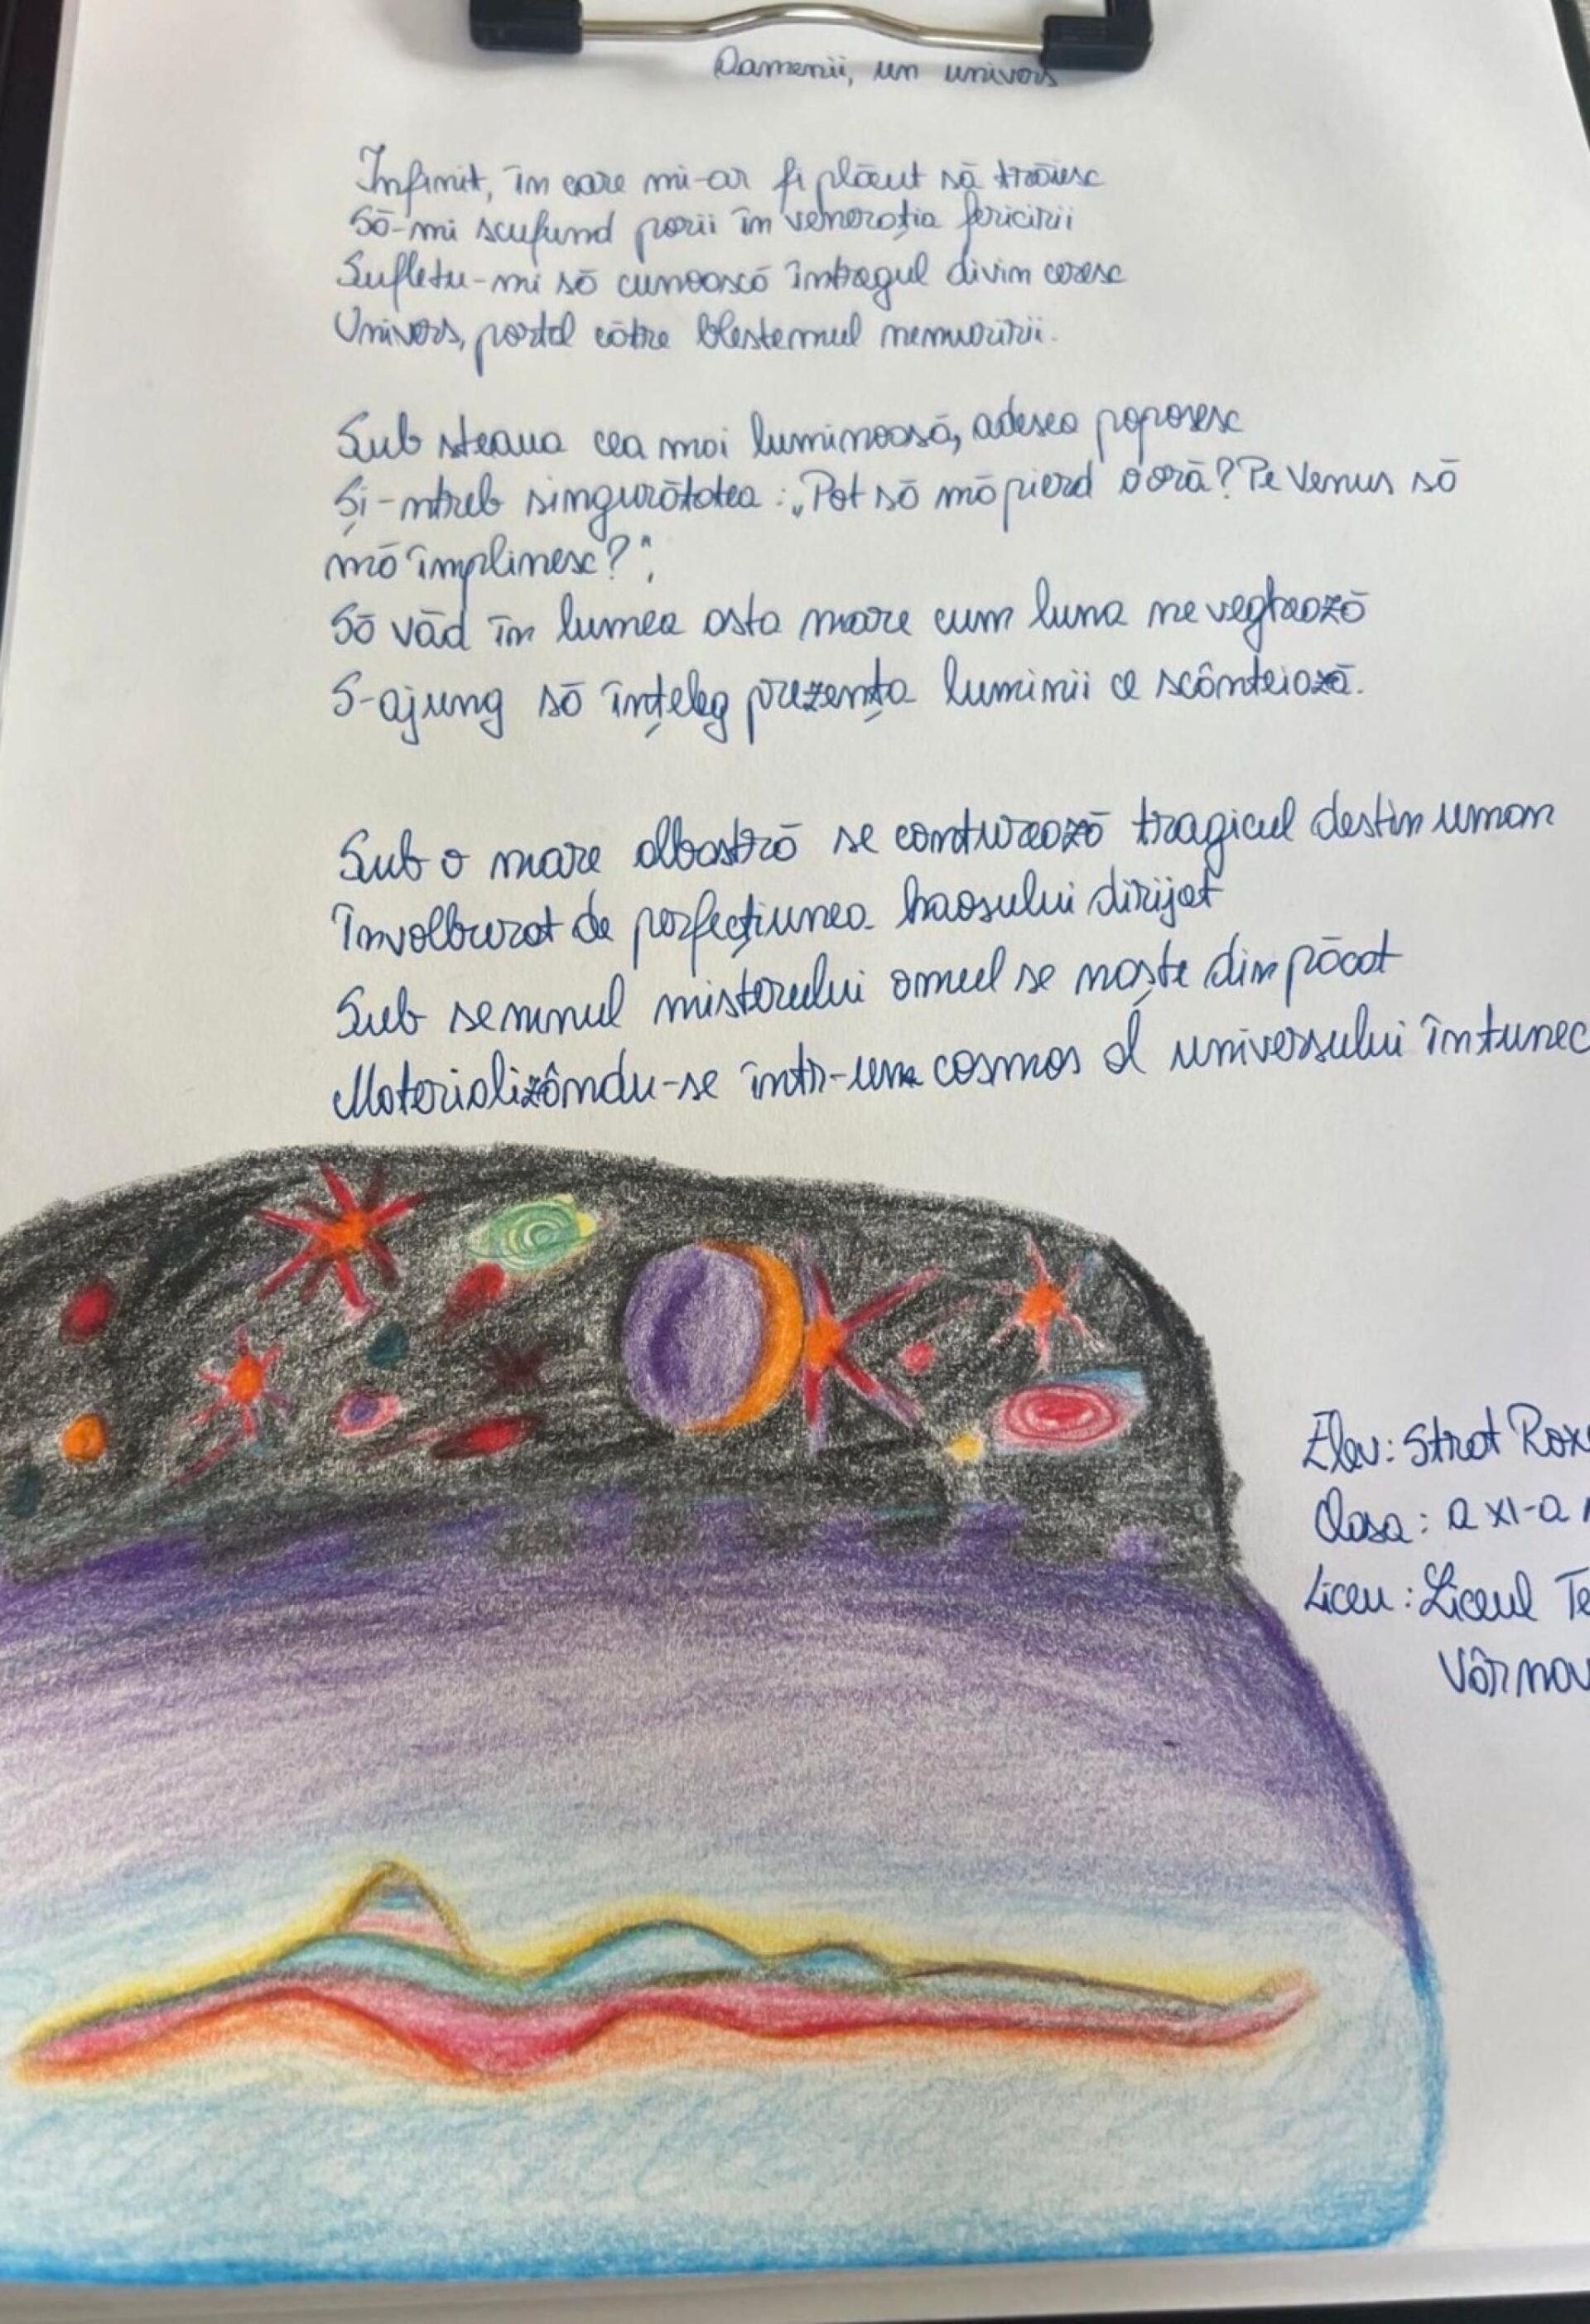 Oamenii, un univers
Infinit, în care mi-ar fi plăcut să trăiesc
Să-mi scufund porii în venerația fericirii
Sufletu-mi să cunoască întregul divim ceresc
Univers, portal către blestemul nemuririi.
Sub steaua cea mai luminoasă, adesea poposesc
Și-ntreb singurătatea: „Pot să mă pierd o oră? Pe Venus să
mă împlinesc?";
Să văd în lumea asta mare cum luna ne veghează
S-ajung să înțeleg prezența luminii ce scânteiază.
Sub o mare albastră se conturează tragicul destin uman
Învolburat de perfecțiunea haosului dirijat
Sub semnul misterului omul se naște din păcat
Materializându-se într-un cosmos al universului întunec
Elev: Strat Rox
Clasa: a XI-a
Liceu: Liceul Te
Vârnav